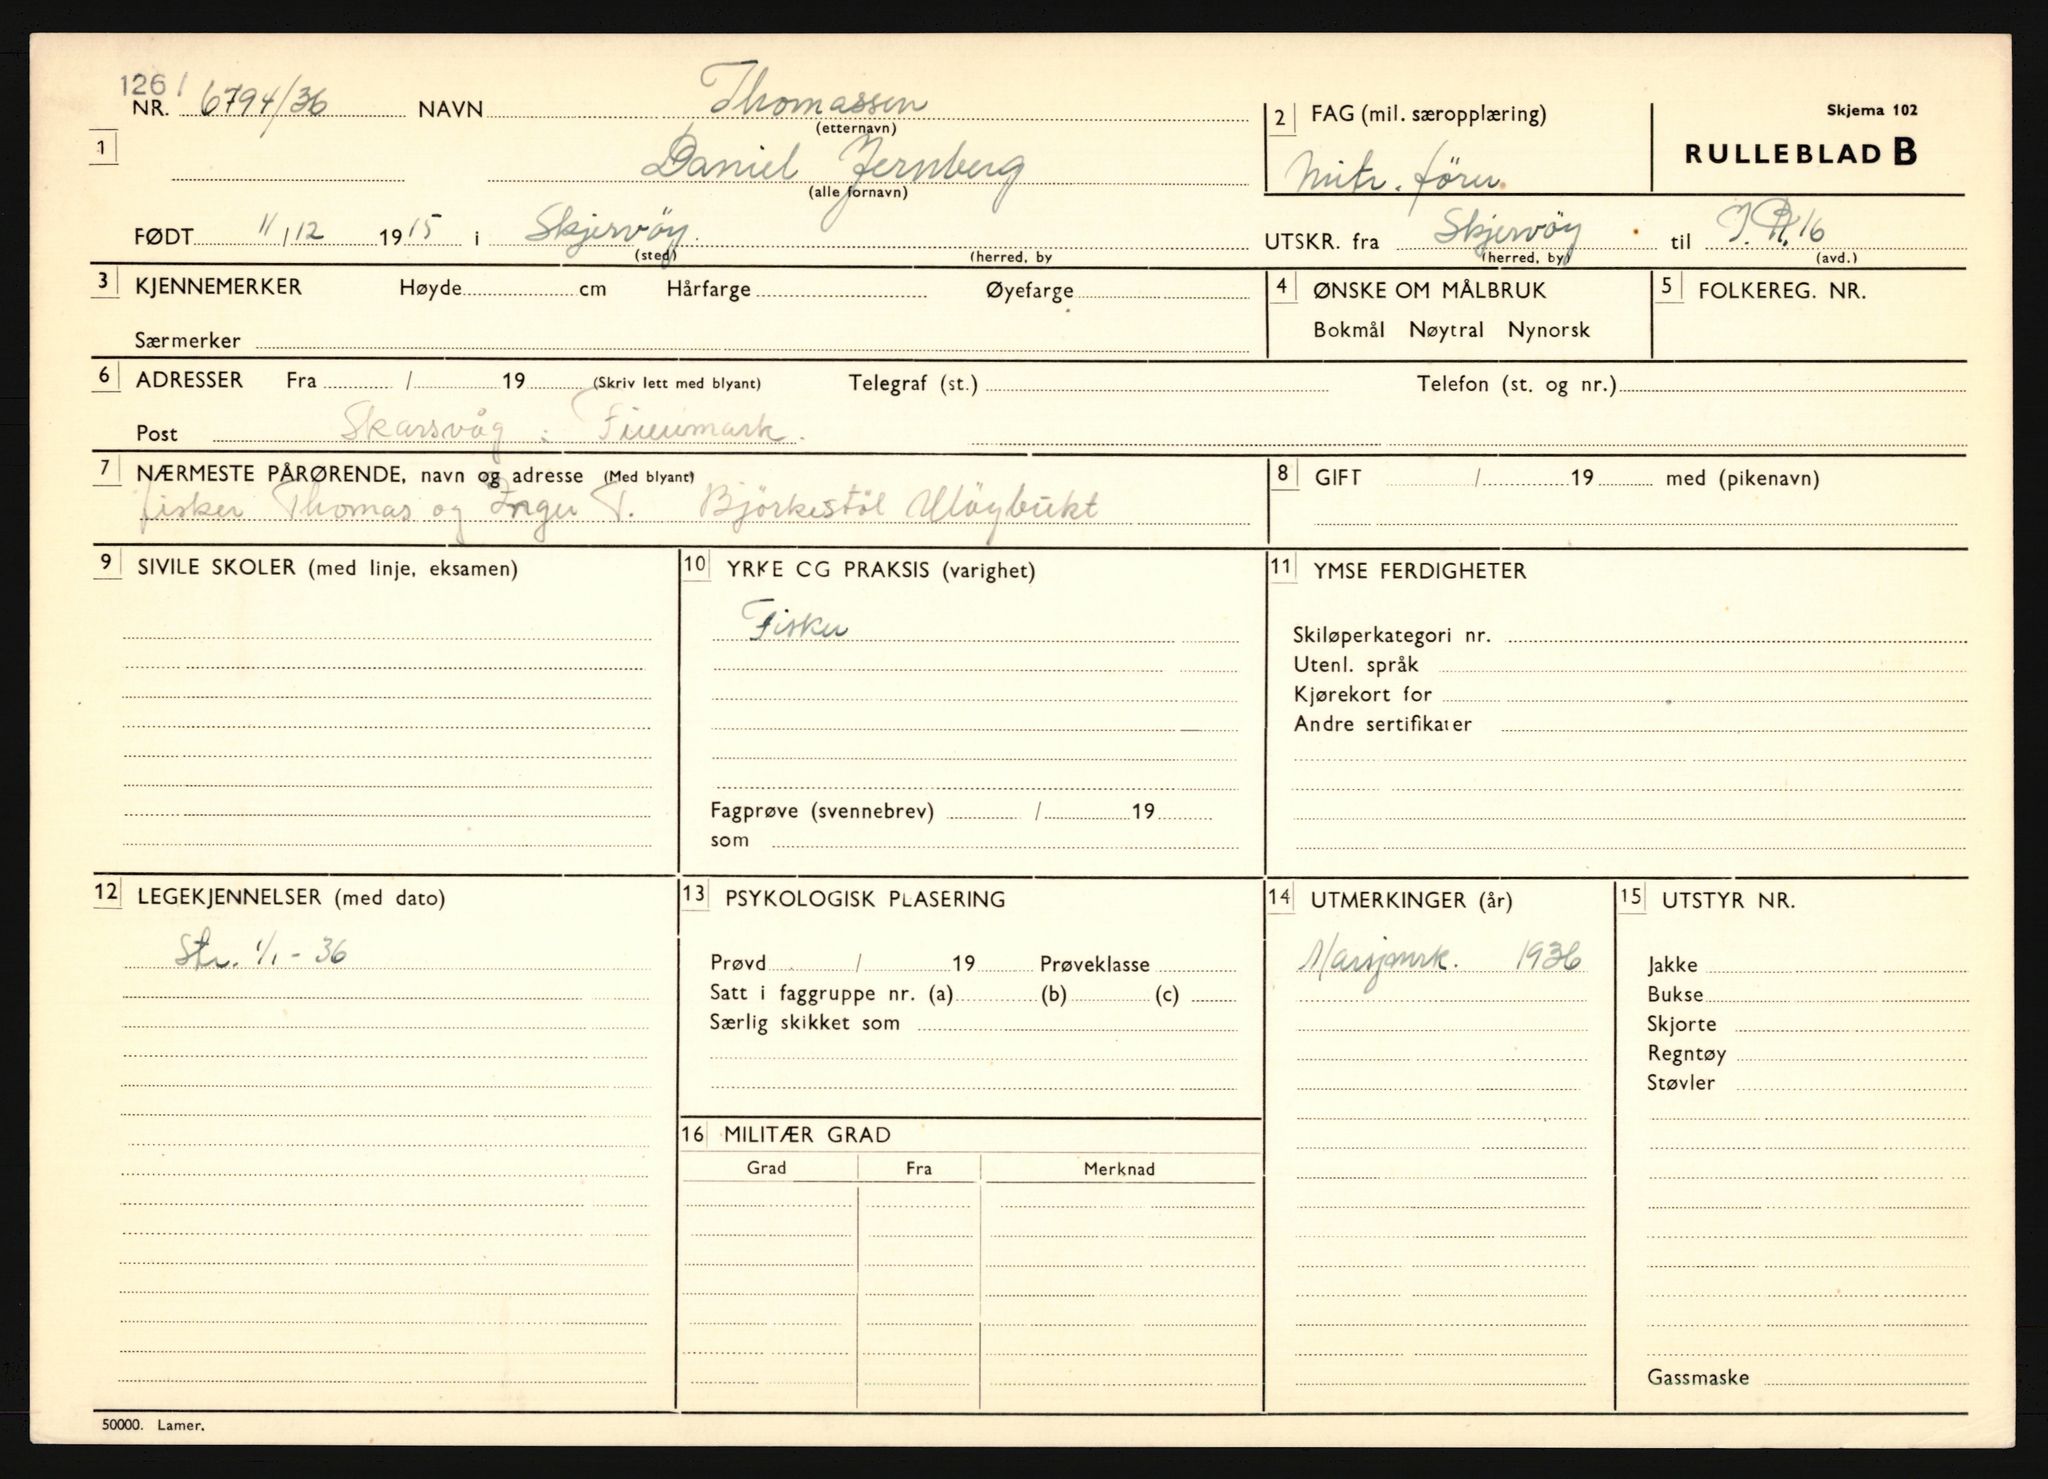 126/
NR. 6794/36 NAVN Thomassen
(etternavn)
2 FAG (mil. særopplæring)
Skjema 102
RULLEBLAD B
1
Daniel Jernberg
(alle fornavn)
Mitr. förer
FØDT 11/12 1915 i Skjervöy
(sted) (herred, by
UTSKR. fra Skjervöy til I.R.16
(herred, by) (avd.)
3 KJENNEMERKER Høyde cm Hårfarge Øyefarge
Særmerker
4 ØNSKE OM MÅLBRUK
Bokmål Nøytral Nynorsk
5 FOLKEREG. NR.
6 ADRESSER Fra / 19 (Skriv lett med blyant) Telegraf (st.) Telefon (st. og nr.)
Post Skarsvåg. Finnmark.
7 NÆRMESTE PÅRØRENDE, navn og adresse (Med blyant)
fisker Thomas og Inger T. Björkestöl Ulöybukt
8 GIFT / 19 med (pikenavn)
9 SIVILE SKOLER (med linje, eksamen)
10 YRKE CG PRAKSIS (varighet)
Fisker
Fagprøve (svennebrev) / 19
som
11 YMSE FERDIGHETER
Skiløperkategori nr.
Utenl. språk
Kjørekort for
Andre sertifikater
12 LEGEKJENNELSER (med dato)
Str. 1/1 - 36
13 PSYKOLOGISK PLASERING
Prøvd / 19 Prøveklasse
Satt i faggruppe nr. (a) (b) (c)
Særlig skikket som
14 UTMERKINGER (år)
Marsjmrk. 1936
15 UTSTYR NR.
Jakke
Bukse
Skjorte
Regntøy
Støvler
Gassmaske
16 MILITÆR GRAD
Grad Fra Merknad
50000. Lamer.